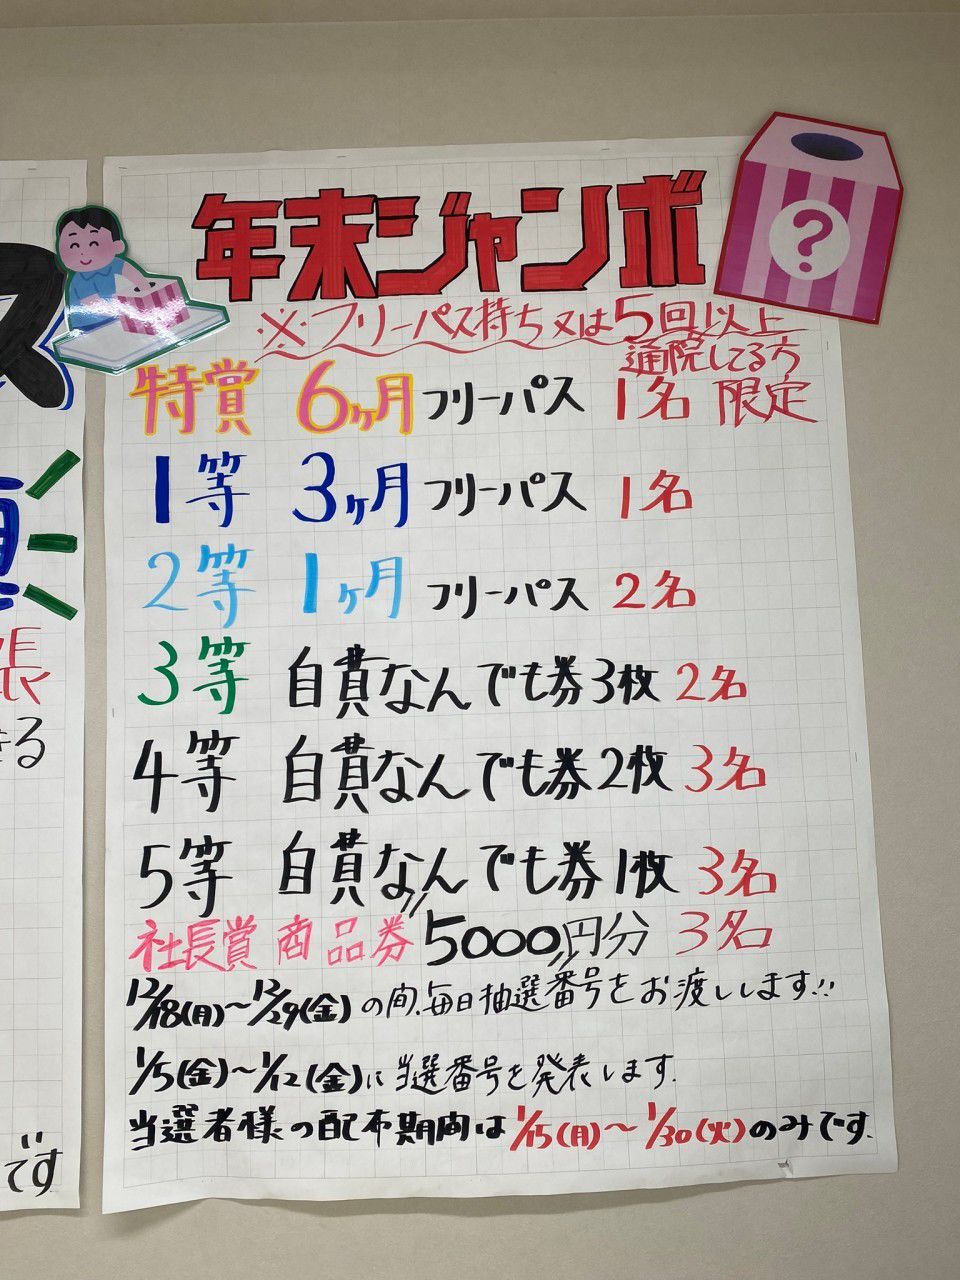 年末ジャンボ
?
※フリーパス持ち又は5回以上
通院してる方
限定
特賞 6ヶ月 フリーパス 1名
1等 3ヶ月 フリーパス 1名
2等 1ヶ月 フリーパス 2名
3等 自費なんでも券3枚 2名
4等 自費なんでも券2枚 3名
5等 自費なんでも券1枚 3名
社長賞 商品券 5000円分 3名
12/18(月)~12/29(金)の間、毎日抽選番号をお渡しします!!
1/5(金)~1/12(金)に当選番号を発表します.
当選者様の配布期間は1/15(月)~1/30(火)のみです.
ス
きる
です